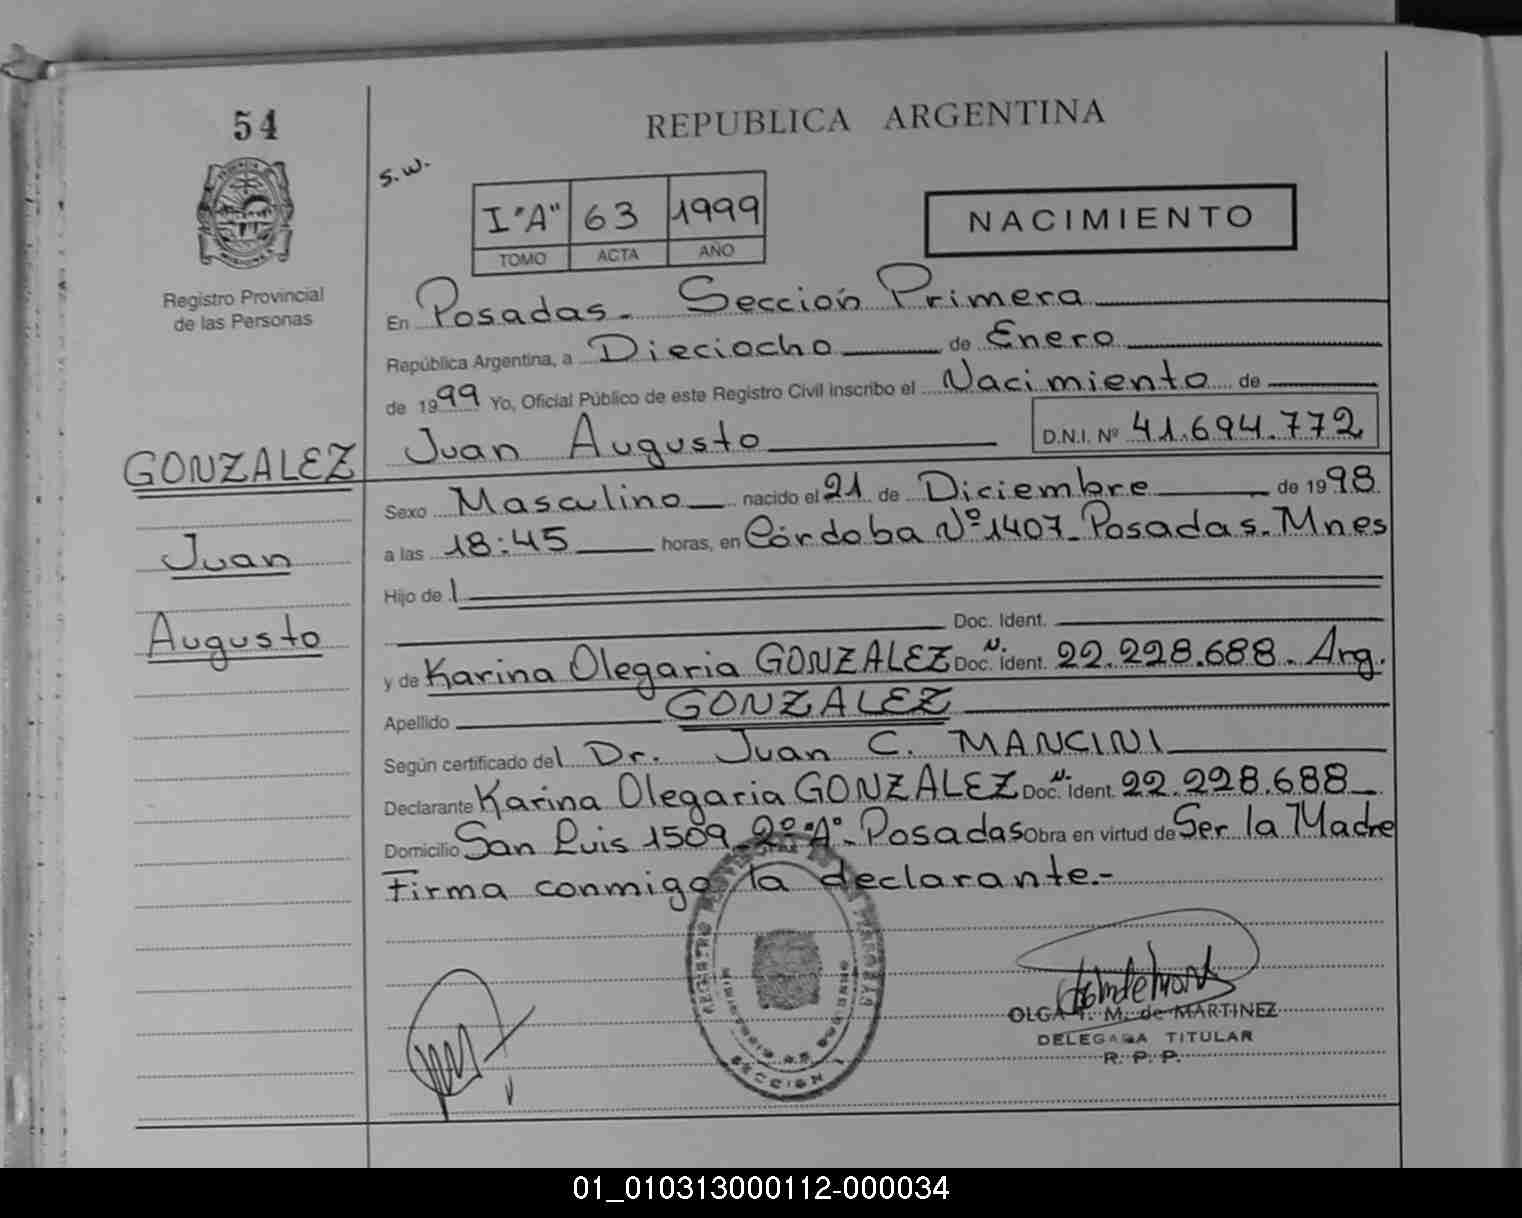 54
REPUBLICA ARGENTINA
s.w.
I "A" 63 1999
TOMO ACTA AÑO
NACIMIENTO
Registro Provincial
de las Personas
En Posadas. Sección Primera
República Argentina, a Dieciocho de Enero
de 1999 Yo, Oficial Público de este Registro Civil inscribo el Nacimiento de
Juan Augusto D.N.I. Nº 41.694.772
GONZALEZ
Juan
Augusto
Sexo Masculino nacido el 21 de Diciembre de 1998
a las 18:45 horas, en Córdoba Nº 1407. Posadas. Mnes
Hijo de
Doc. Ident.
y de Karina Olegaria GONZALEZ Doc. N. Ident. 22.228.688. Arg.
Apellido GONZALEZ
Según certificado del Dr. Juan C. MANCINI
Declarante Karina Olegaria GONZALEZ Doc. N. Ident. 22.228.688
Domicilio San Luis 1509 2º "A". Posadas Obra en virtud de Ser la Madre
Firma conmigo la declarante.-
REGISTRO PROVINCIAL DE LAS PERSONAS
MINISTERIO DE GOBIERNO
SECCION 1
OLGA T. M. de MARTINEZ
DELEGADA TITULAR
R. P. P.
01_010313000112-000034